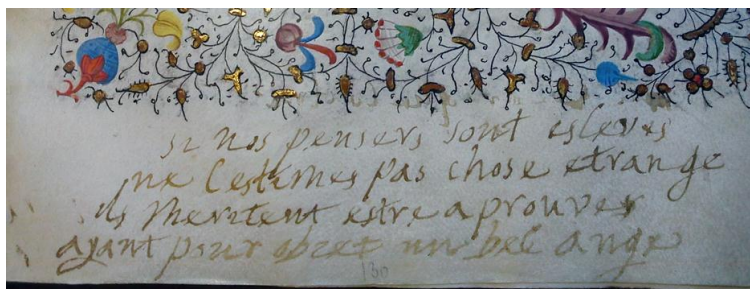 si nos pensers sont esleves
ne lestimes pas chose etrange
ils meritent estre aprouves
ayant pour obiet un bel ange
130